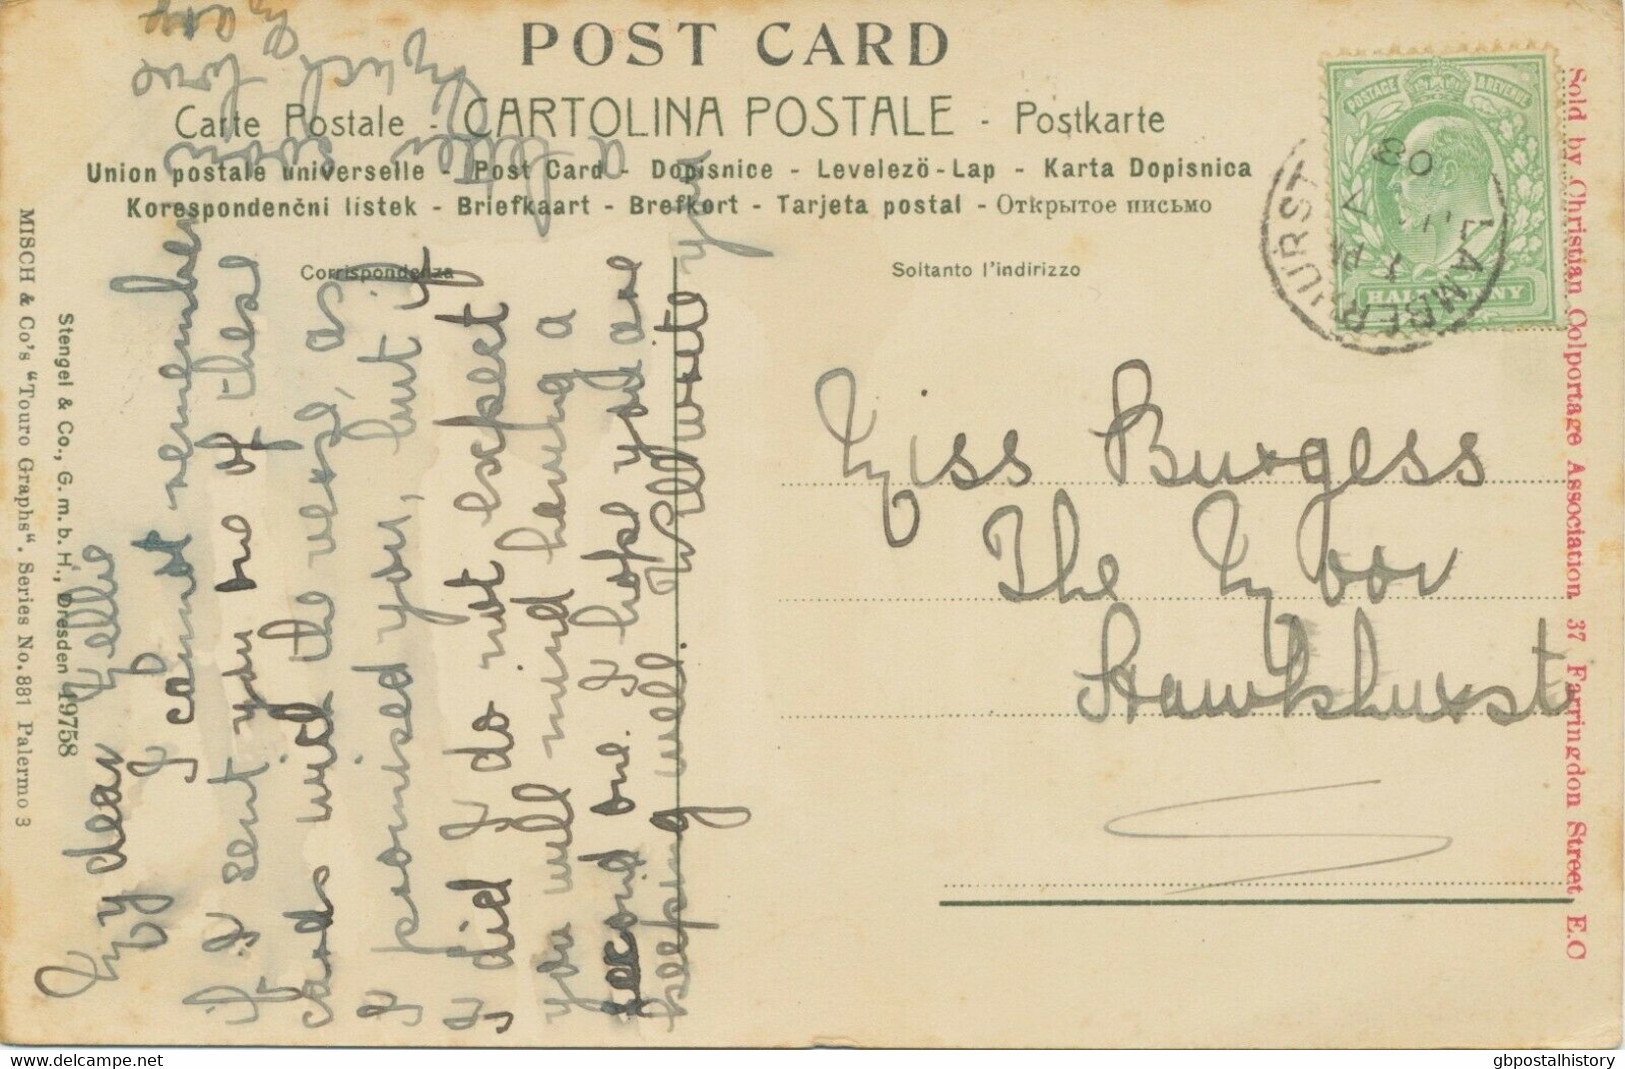 POST CARD
Carte Postale - CARTOLINA POSTALE - Postkarte
Union postale universelle - Post Card - Dopisnice - Levelezö-Lap - Karta Dopisnica
Korespondenční lístek - Briefkaart - Brefkort - Tarjeta postal - Открытое письмо
Corrispondenza
Soltanto l'indirizzo
POSTAGE & REVENUE
HALFPENNY
LAMBERHURST
1 PM
7
08
Sold by Christian Colportage Association 37 Farringdon Street E.C
MISCH & Co's "Touro Graphs". Series No. 881 Palermo 3
Stengel & Co., G. m. b. H., Dresden 19758
My dear Nellie
I cannot remember
if I sent you one of these
cards with the verse, as
I promised you, but if
I did I do not expect
you will mind having a
second one. I hope you are
keeping well. Will write you
a letter
with love
from
Miss Burgess
The Moor
Hawkhurst
gbpostalhistory
www.delcampe.net